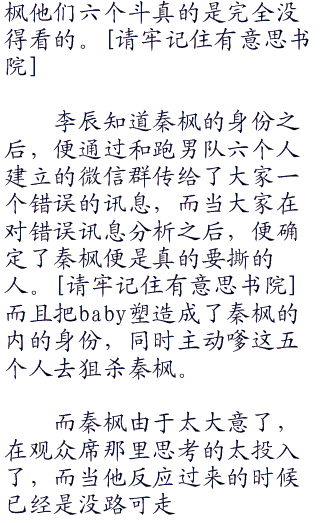 枫他们六个斗真的是完全没
得看的。[请牢记住有意思书
院]
李辰知道秦枫的身份之
后，便通过和跑男队六个人
建立的微信群传给了大家一
个错误的讯息，而当大家在
对错误讯息分析之后，便确
定了秦枫便是真的要撕的
人。[请牢记住有意思书院]
而且把baby塑造成了秦枫的
内的身份，同时主动嗲这五
个人去狙杀秦枫。
而秦枫由于太大意了，
在观众席那里思考的太投入
了，而当他反应过来的时候
已经是没路可走